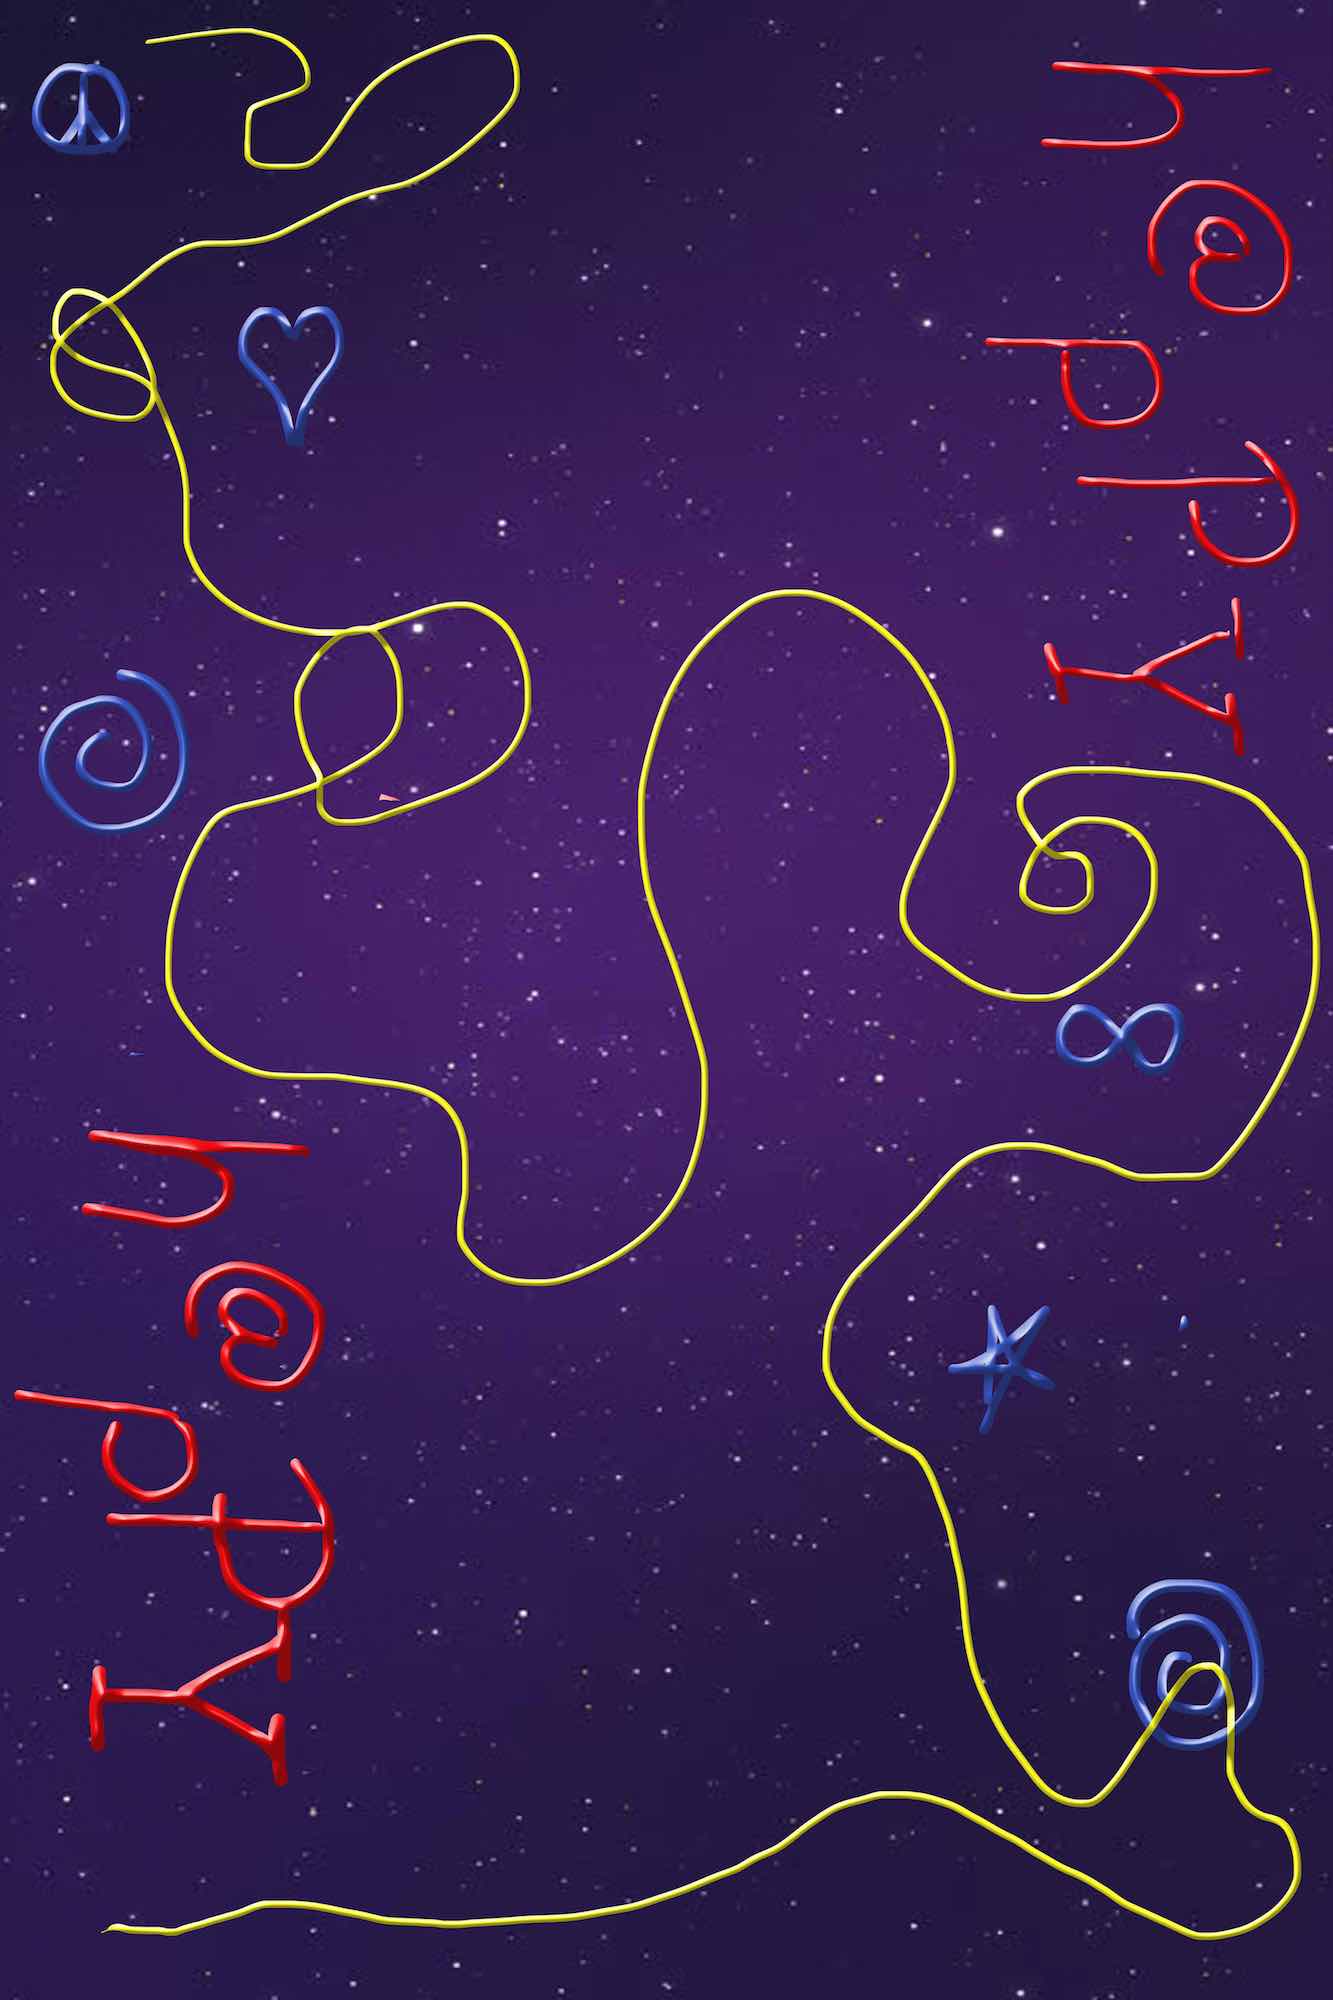 h@pPY
h@pPY